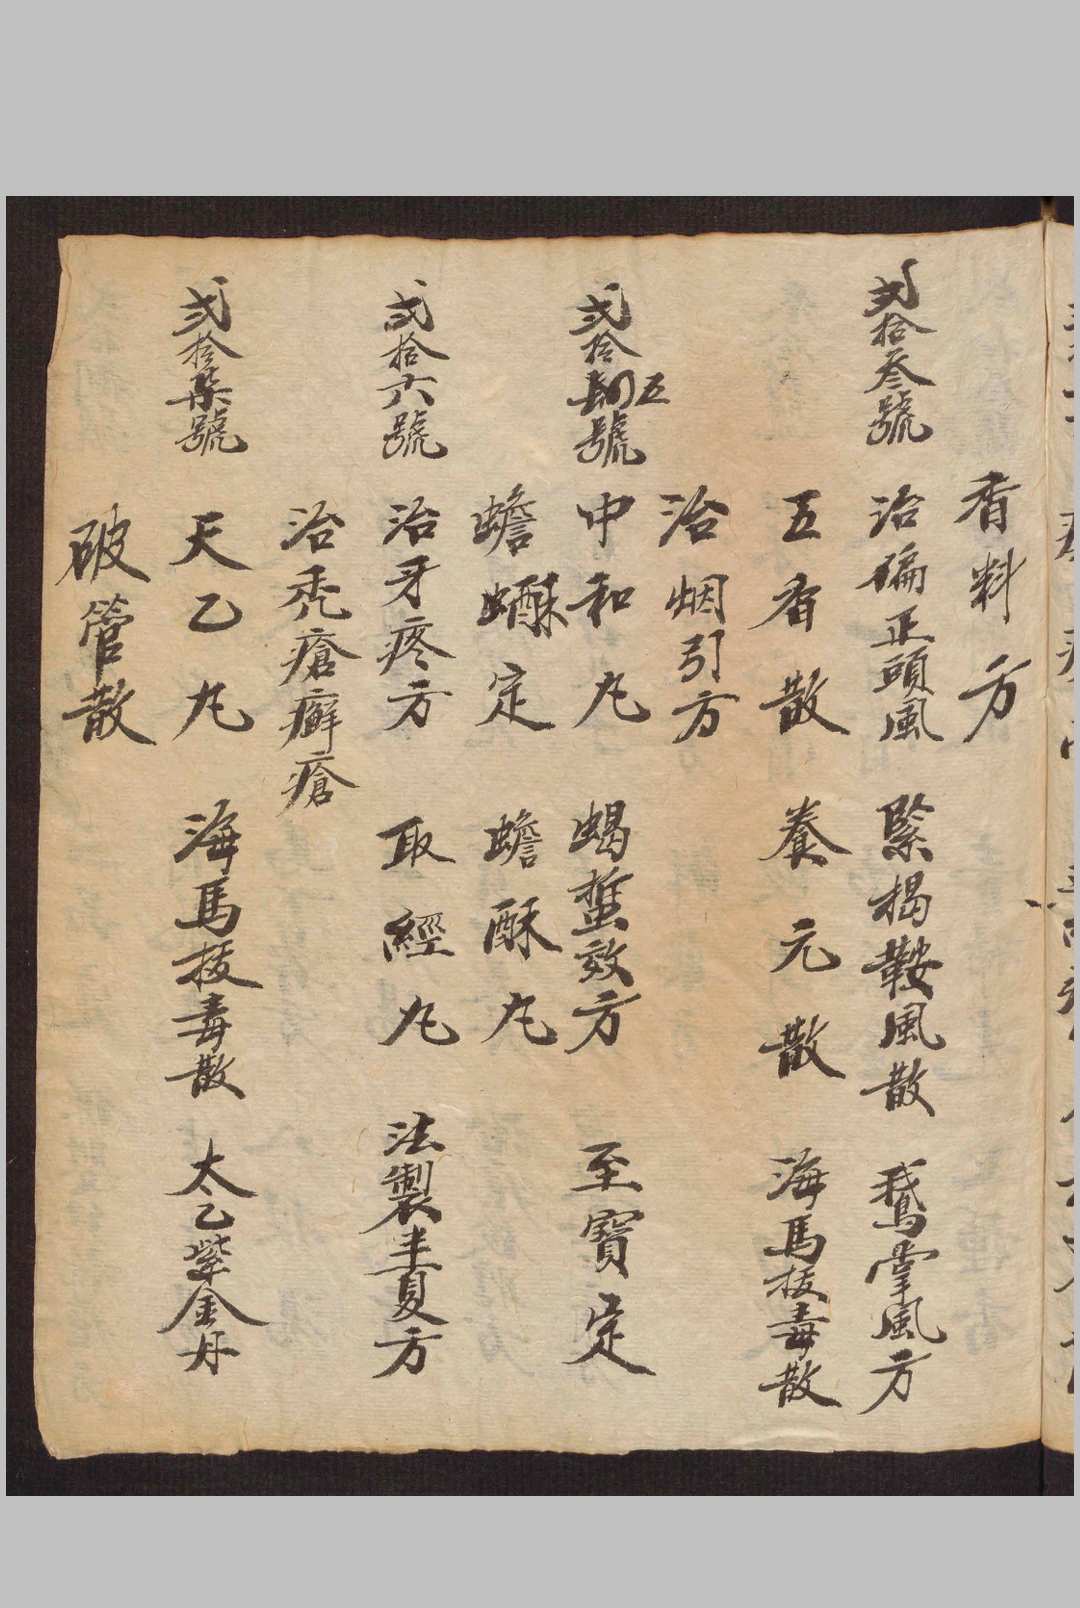 香料方
弍拾叁號 治偏正頭風 緊揭鞍風散 鵝掌風方
五香散 養元散 海馬拔毒散
治烟引方
弍拾五號 中和丸 蝎蜇效方 至寶定
蟾酥定 蟾酥丸
弍拾六號 治牙疼方 取經丸 法製半夏方
治禿瘡癬瘡
弍拾柒號 天乙丸 海馬拔毒散 太乙紫金丹
破管散